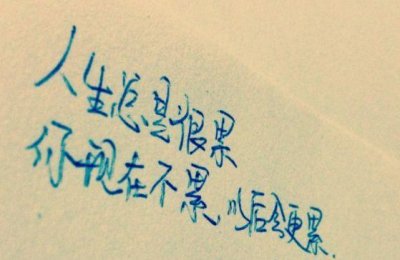 人生总是很累
你现在不累、以后会更累.